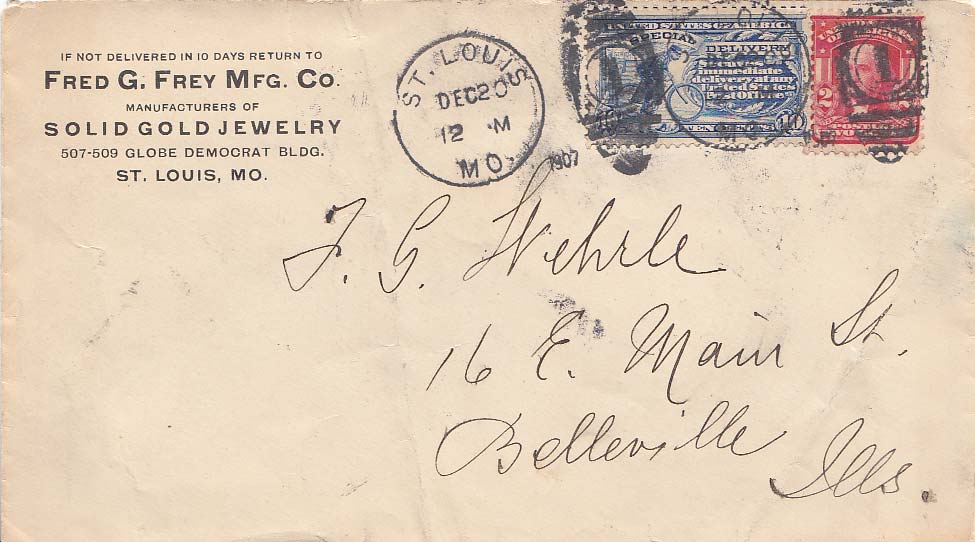 IF NOT DELIVERED IN 10 DAYS RETURN TO
FRED G. FREY MFG. CO.
MANUFACTURERS OF
SOLID GOLD JEWELRY
507-509 GLOBE DEMOCRAT BLDG.
ST. LOUIS, MO.
ST. LOUIS
DEC 20
12 M
MO.
1907
UNITED STATES OF AMERICA
SPECIAL DELIVERY
immediate
delivery
United States
TEN CENTS 10
1
2
POSTAGE
TWO
F. G. Wehrle
16 E. Main St.
Belleville
Ills.